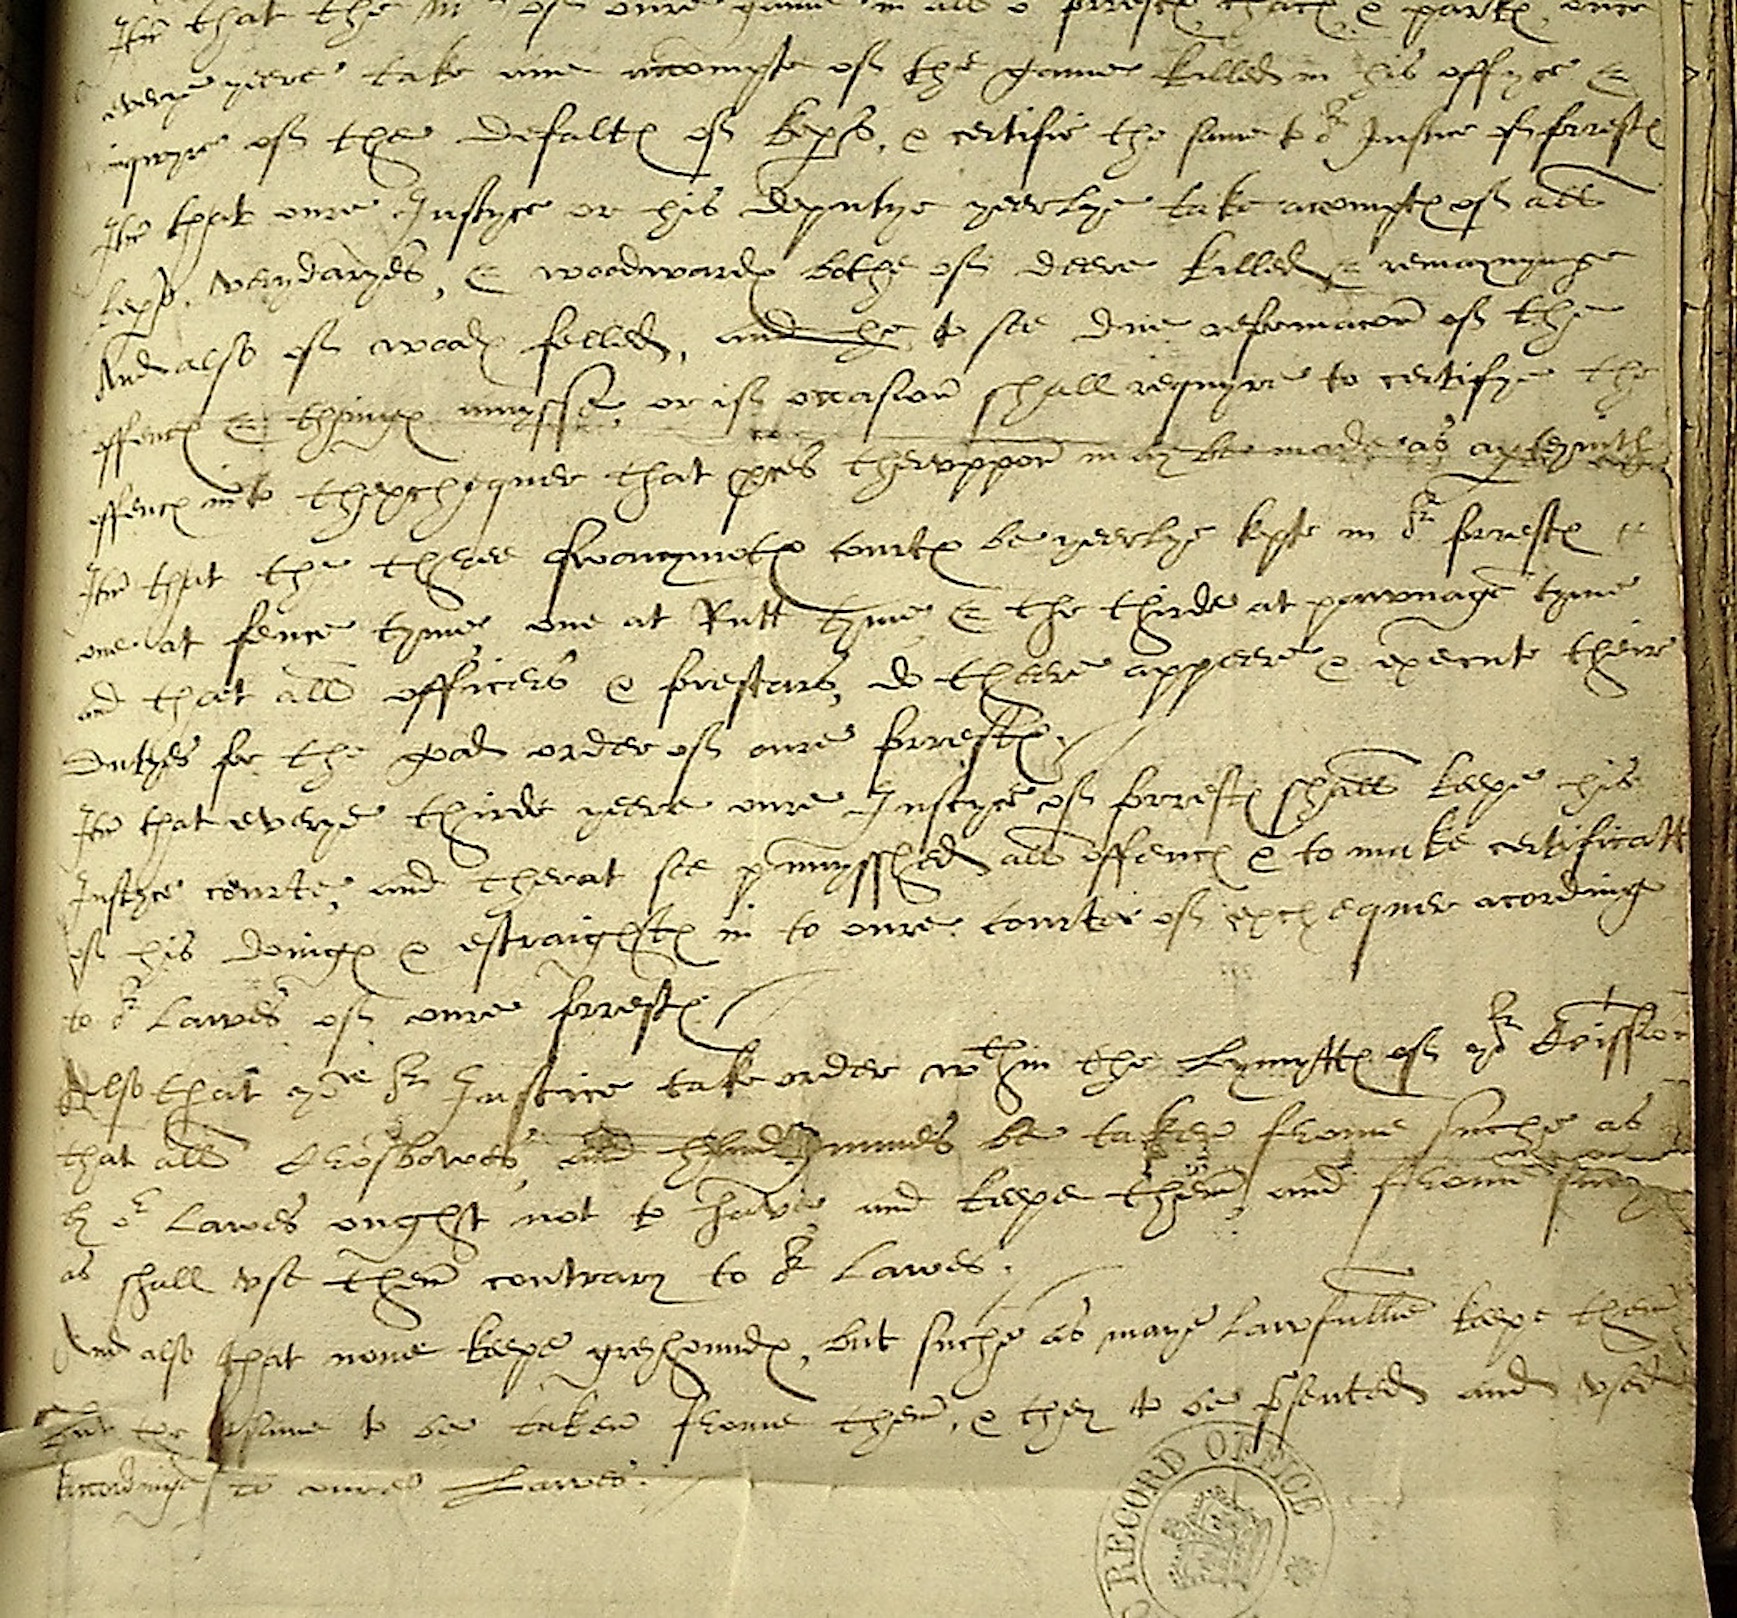 Itm that the Mr of oure game in all or forrestes chaces & parkes once
everye yeere take one accompte of the game killed in his offyce &
iquyre of the defaltes of kepers, & certifie the same to or Justice of forrestes
Itm that oure Justyce or his deputye yeerlye take accomptes of all
kepers, verydaryes, & woodwardes bothe of deere killed & remaynynge
And also of woodes felled, and he to see due reformacon of the
offences & thinges amysse, or if occasion shall requyre to certifye the
offences into thexchequer that proces thereuppon may be made as apperteynith
Itm that the three swanymotes courtes be yeerlye kepte in or forrestes
one at fence tyme one at Rutt tyme & the thirde at pawnage tyme
and that all officers & forestars, do theere appeere & execute their
dutyes for the good order of oure forrestes.
Itm that everye thirde yeere oure Justyce of forrestes shall keepe his
Justyce courte, and therat see punnysshed all offences & to make certificatt
of his doinges & estraightes in to oure courte of exchequer acording
to or Lawes of oure forrestes.
Also that yow or Justice take order wthin the Lymyttes of yor Comission
that all Crosbowes, and handgunnes be taken frome suche as
by or Lawes ought not to have and keepe them and frome suche
as shall use them contrary to or Lawes.
And also that none keepe greyhoundes, but suche as maye lawfullie keepe them
But the same to be taken frome them, & they to be presented and used
Accordinge to oure Lawes.
RECORD OFFICE